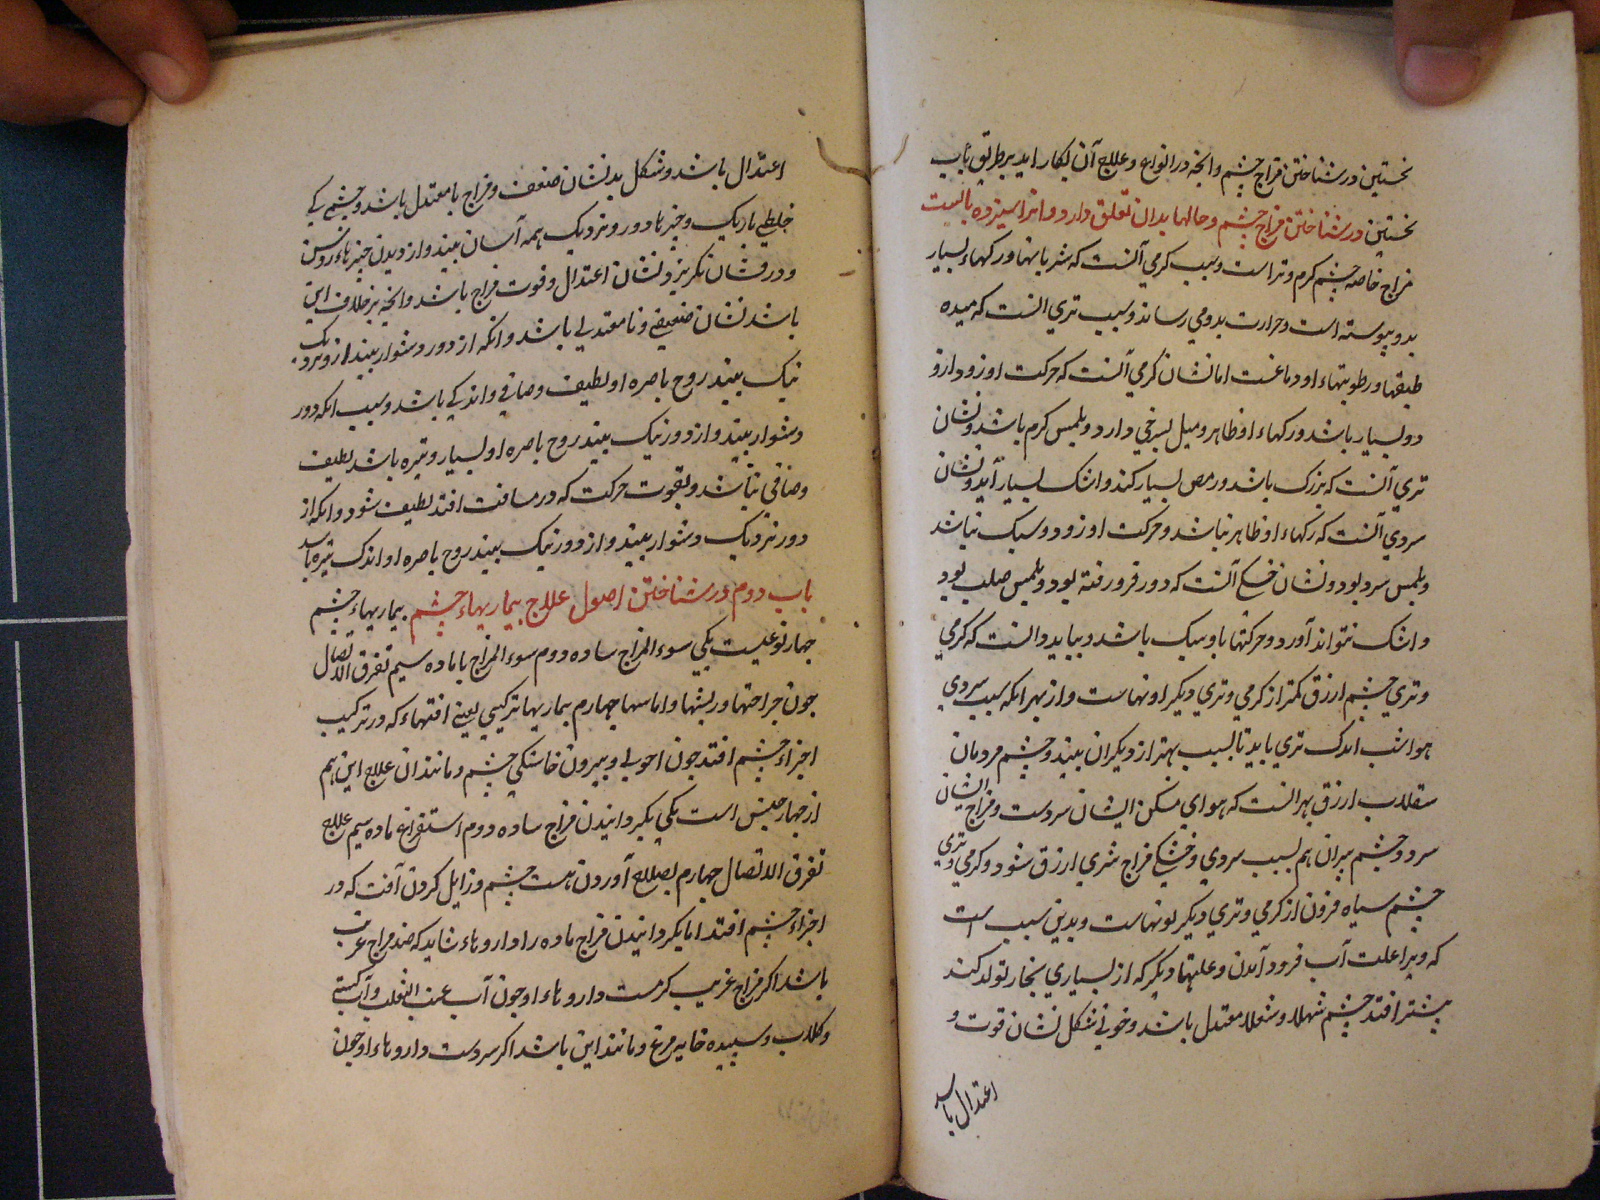 نخستین در شناختن مزاج چشم وانچه در انواع و علاج آن بکار اید بر طریق باب
نخستین در شناختن مزاج چشم و حالها بدان تعلق دارد وانرا سیزده بابست
مزاج خاصه چشم کرم و تر است و سبب کرمی آنست که شریانها و رکهاء بسیار
بدو پیوسته است و حرارت بدو می رساند و سبب تری انست که میده
طبقها و رطوبتهاء او دماغست اما نشان کرمی آنست که حرکت او زود از و
دو بسیار باشد و رکهاء او ظاهر و میل بسرخی دارد و بلمس کرم باشد و نشان
تری آنست که بزرک باشد و رمص بسیار کند و اشک بسیار آید و نشان
سردی آنست که رکهاء او ظاهر نباشد و حرکت او زود و سبک نباشد
و بلمس سرد بود و نشان خشکی آنست که دور فرو رفته بود و بلمس صلب بود
و اشک نتواند آورد و حرکتها با و سبک باشد و بباید دانست که کرمی
و تری چشم ارزق کمتر از کرمی و تری دیکر لونهاست و از بهر انکه سبب سردی
هوا شب اندک تری یابد تا لسبب بهتر از دیکران بیند و چشم مردمان
سقلاب ارزق بهر انست که هوای مسکن ایشان سردست و مزاج ایشان
سرد و چشم پیران هم بسبب سردی و خشکی مزاج شری ارزق شود و کرمی و تری
چشم سیاه فزون از کرمی و تری دیکر لونهاست و بدین سبب است
که ویرا علت آب فرود آمدن و علتها دیکر که از بسیاری بخار تولد کند
بیشتر افتد چشم شهلا و شعلا معتدل باشد و خوبی شکل نشان قوت و
اعتدال باشد
اعتدال باشد و شکل بد نشان ضعف و مزاج با معتدل باشد و چشمی که
خطی باریک و چیزها دور و نزدیک همه آسان بیند و از دیدن چیزهاء روشن
و درفشان نکریزد نشان اعتدال و قوت مزاج باشد وانچه بر خلاف این
باشد نشان ضعیفی و نا معتدلی باشد وانکه از دور دشوار بیند از نزدیک
نیک بیند روح باصره او لطیف و صافی و اندکی باشد و سبب انکه دور
دشوار بیند و از دور نیک بیند روح باصره او بسیار و تیره باشد لطیف
و صافی نباشد و بقوت حرکت که در مسافت افتد لطیف شود وانکه از
دور نزدیک دشوار بیند و از دور نیک بیند روح باصره او اندک تیره باشد
باب دوم در شناختن اصول علاج بیماریهاء چشم بیماریهاء چشم
چهار نوعیست یکی سوء المزاج ساده دوم سوء المزاج با ماده سیم تفرق الاتصال
جون جراحتها و ریشها و اماسها چهارم بیماریها ترکیبی یعنی افتهاء که در ترکیب
اجزاء چشم افتد جون احولی و بیرون خاستکی چشم و مانند ان علاج این هم
از چهار جنس است یکی بکردانیدن مزاج ساده دوم استفراغ ماده سیم علاج
تفرق الاتصال چهارم بصلاح آوردن هیئت چشم و زایل کردن آفت که در
اجزاء چشم افتد اما بکردانیدن مزاج ماده را داروهاء شاید که ضد مزاج غریب
باشد اکر مزاج غریب کرمست داروهاء او جون آب عنب الثعلب و آب کسنی
و کلاب و سپیده خایه مرغ و مانند این باشد اکر سردست داروهاء او جون